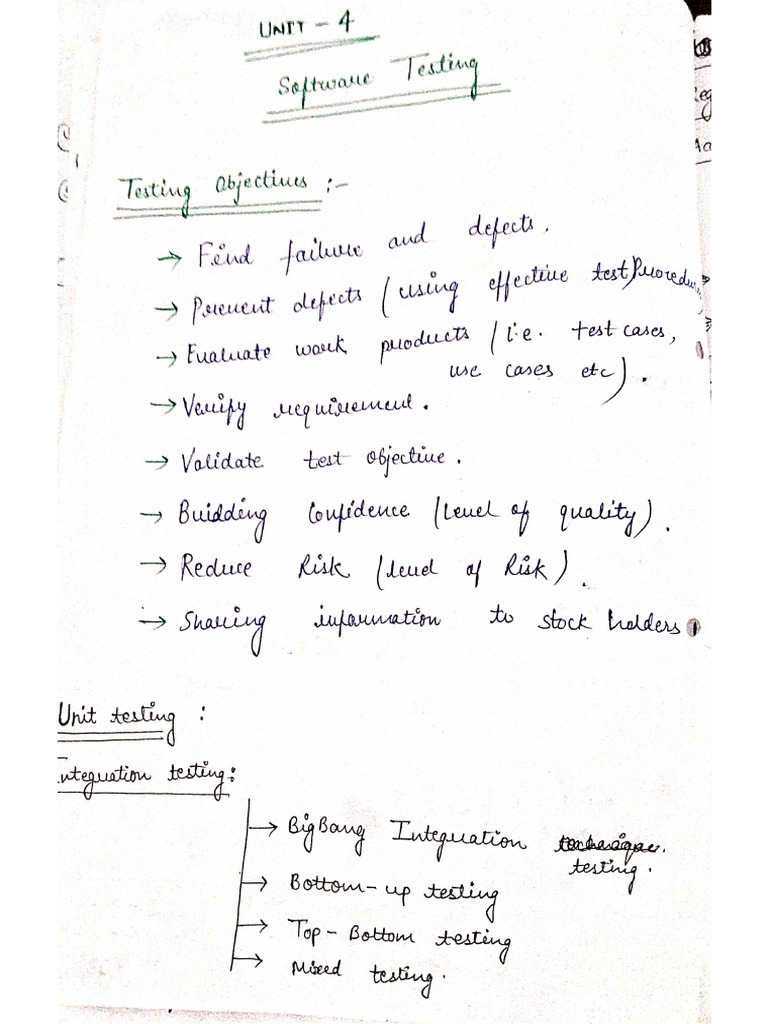 UNIT - 4
Software Testing
Testing Objectives :-
→ Find failure and defects.
→ Prevent defects (using effective test Procedu
→ Evaluate work products (i.e. test cases,
use cases etc).
→ Verify requirement.
→ Validate test objective.
→ Buidding Confidence (Level of quality).
→ Reduce Risk (level of Risk).
→ Sharing information to stock holders
Unit testing :
Integration testing:
→ BigBang Integration
testing.
→ Bottom-up testing
→ Top-Bottom testing
→ Mixed testing.